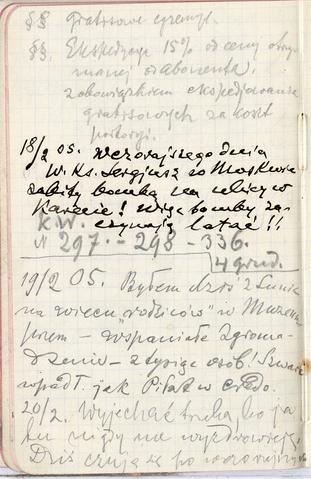 §§ Gratisowe egzempl.
§§. Ekspedycja 15% od ceny otrzy-
manej od abonenta,
z obowiązkiem ekspedjowania
gratisowych za koszt
portorji.
18/2 05. Wczorajszego dnia
W. Ks. Sergjusz w Moskwie
zabity bombą na ulicy w
karecie! Więc bomby za-
czynają latać!!
K.W.
N 297. - 298 - 336.
4 grud.
19/2 05. Byłem dziś z
na wiecu "rodziców" w Muzeum
przem - wspaniałe zgroma-
dzenie - z tysiąc osób.
wpadł. jak Piłat w Credo.
20/2. Wyjechać trzeba, bo ja
tu nigdy nie wyzdrowieję.
Dziś czuję się po wczorajszym